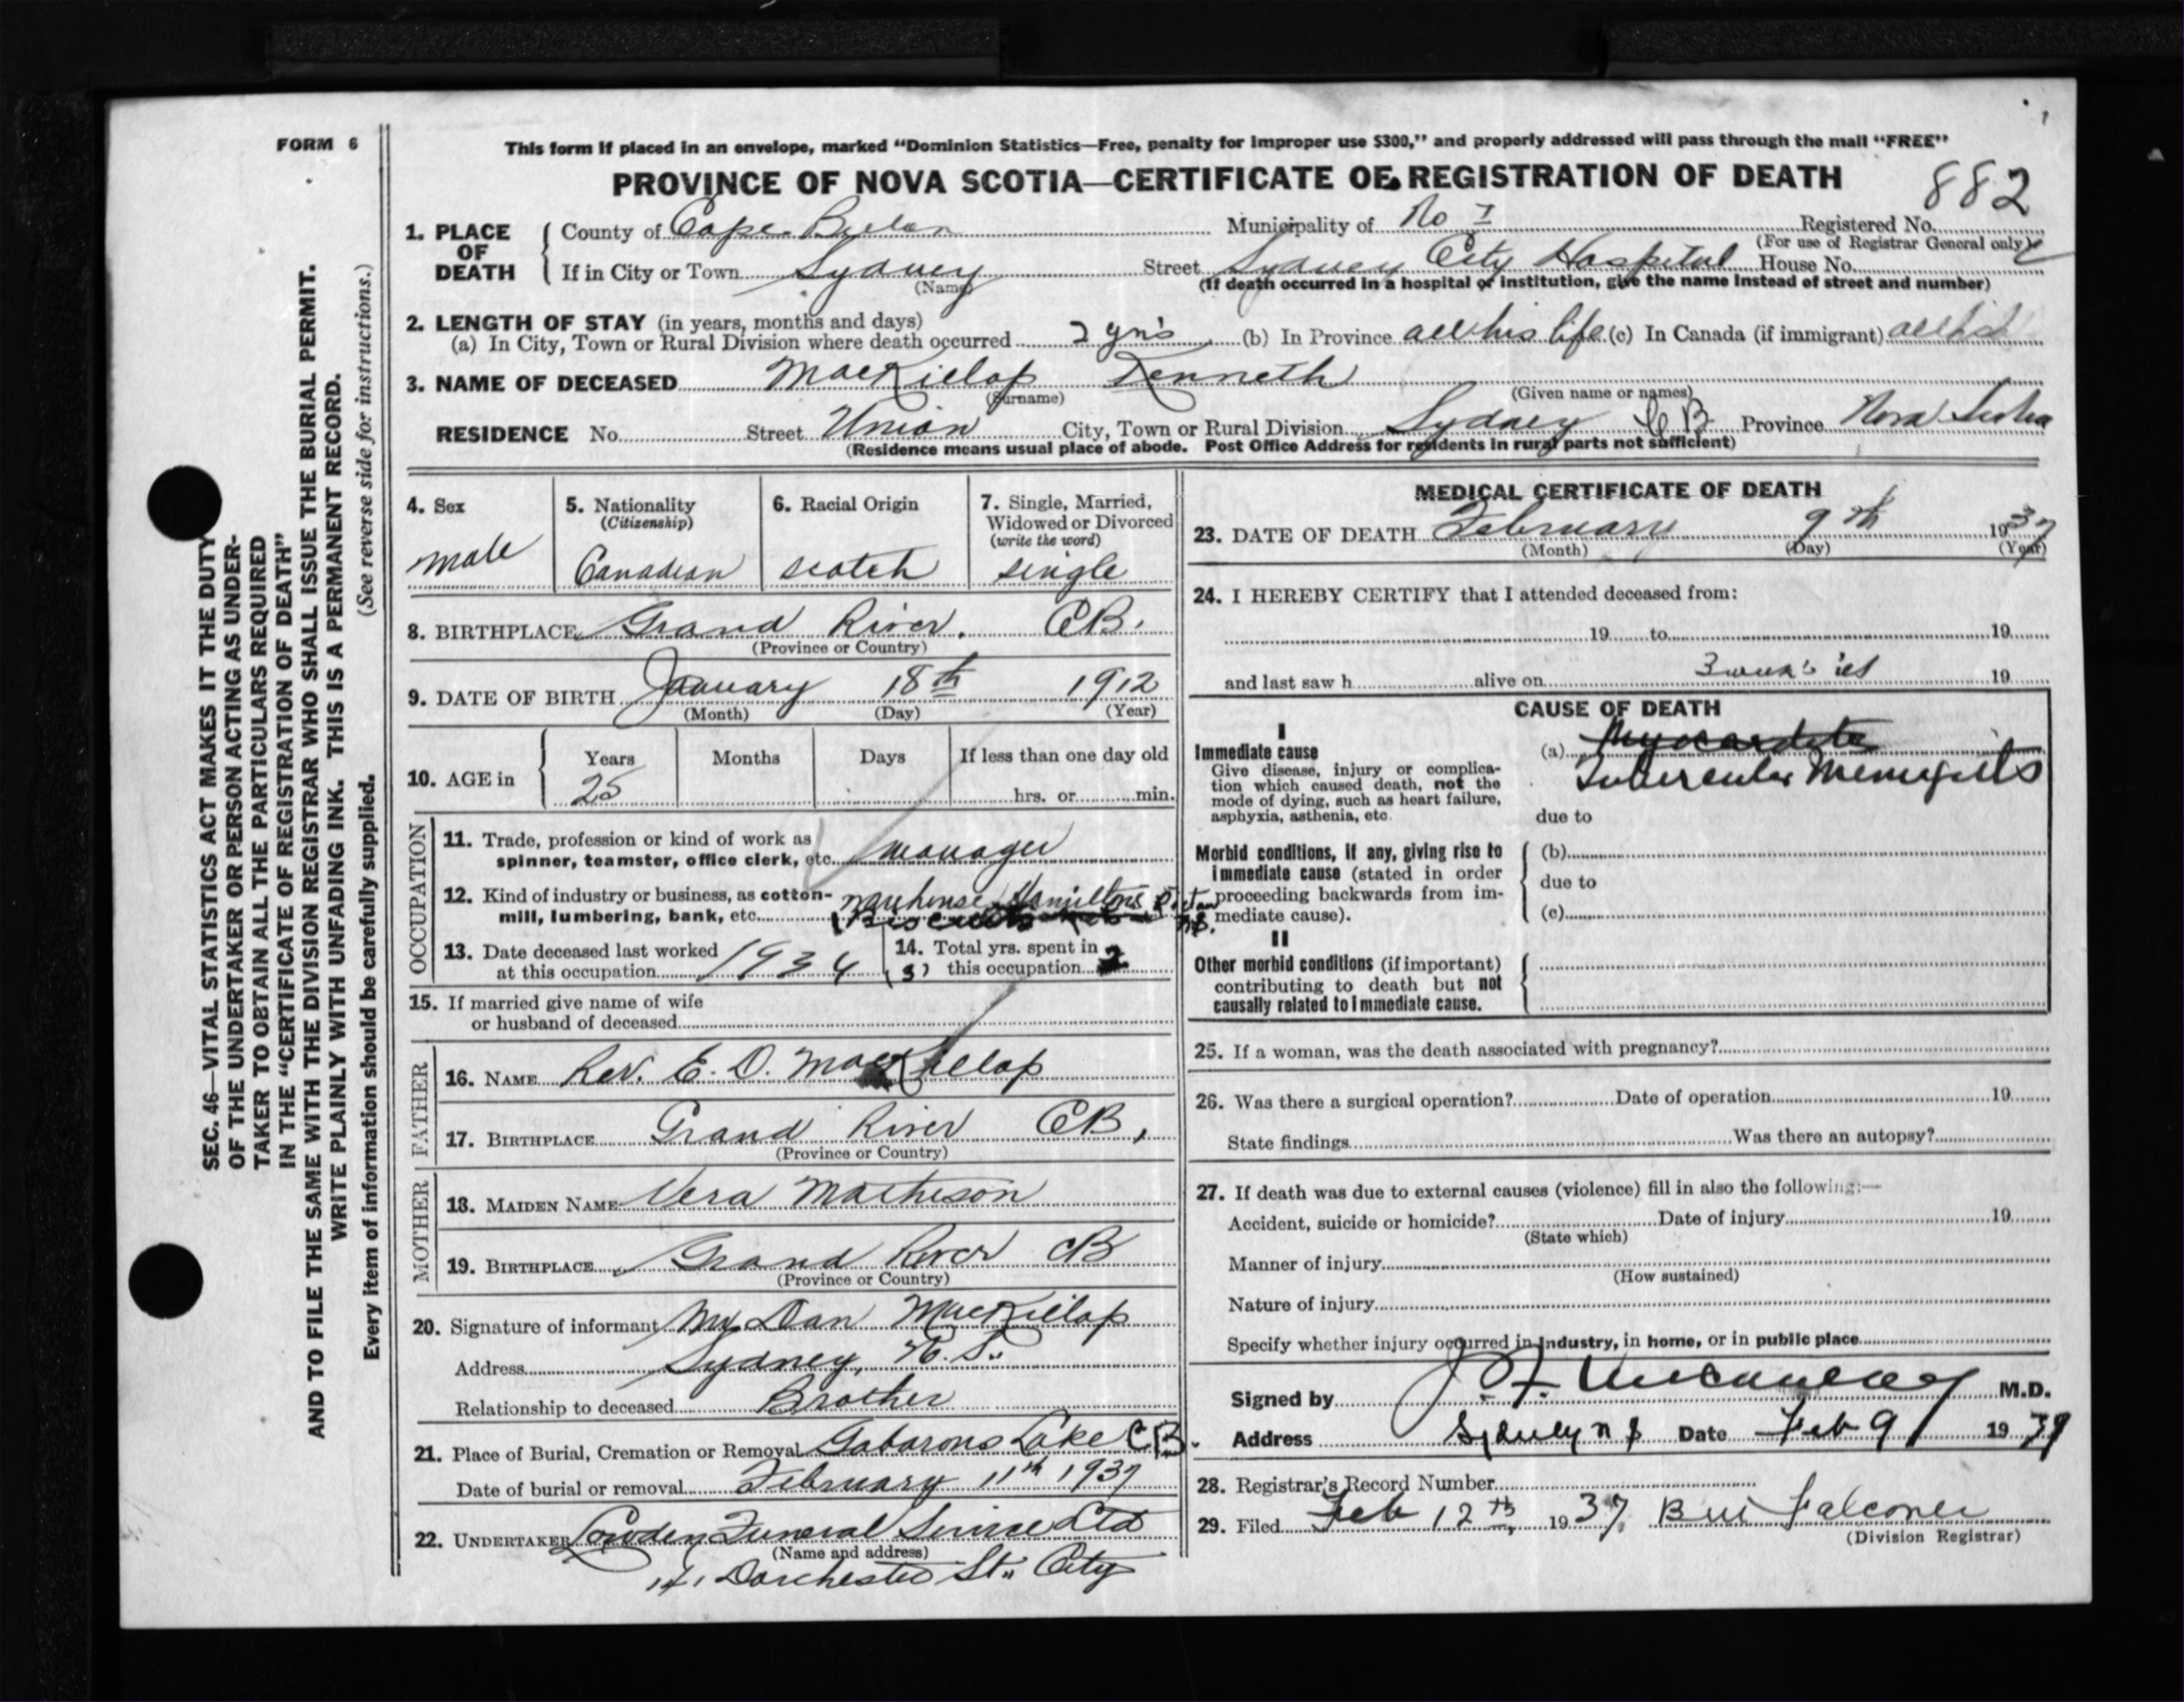 FORM 6
This form if placed in an envelope, marked “Dominion Statistics—Free, penalty for improper use $300,” and properly addressed will pass through the mail “FREE”
PROVINCE OF NOVA SCOTIA—CERTIFICATE OF REGISTRATION OF DEATH
882
1. PLACE OF DEATH
County of Cape Breton Municipality of No 1 Registered No.
(For use of Registrar General only)
If in City or Town Sydney Street Sydney City Hospital House No.
(Name) (If death occurred in a hospital or institution, give the name instead of street and number)
2. LENGTH OF STAY (in years, months and days)
(a) In City, Town or Rural Division where death occurred 2 yrs (b) In Province all his life (c) In Canada (if immigrant)
3. NAME OF DECEASED MacKillop Kenneth
(Surname) (Given name or names)
RESIDENCE No. Street Union City, Town or Rural Division Sydney C B Province Nova Scotia
(Residence means usual place of abode. Post Office Address for residents in rural parts not sufficient)
4. Sex
male
5. Nationality
(Citizenship)
Canadian
6. Racial Origin
scotch
7. Single, Married,
Widowed or Divorced
(write the word)
single
8. BIRTHPLACE Grand River. CB.
(Province or Country)
9. DATE OF BIRTH January 18th 1912
(Month) (Day) (Year)
10. AGE in
Years Months Days If less than one day old
25 hrs. or min.
OCCUPATION
11. Trade, profession or kind of work as
spinner, teamster, office clerk, etc. manager
12. Kind of industry or business, as cotton-
mill, lumbering, bank, etc. warehouse Hamiltons Pictou
N.S.
13. Date deceased last worked
at this occupation 1934
14. Total yrs. spent in
(3) this occupation 2
15. If married give name of wife
or husband of deceased
FATHER
16. NAME Rev. E. D. MacKillop
17. BIRTHPLACE Grand River CB,
(Province or Country)
MOTHER
18. MAIDEN NAME Vera Matheson
19. BIRTHPLACE Grand River CB
(Province or Country)
20. Signature of informant Mr Dan MacKillop
Address Sydney, N.S.
Relationship to deceased Brother
21. Place of Burial, Cremation or Removal Gabarons Lake C B.
Date of burial or removal February 11th 1937
22. UNDERTAKER Cowden Funeral Service Ltd
(Name and address)
Dorchester St. City
MEDICAL CERTIFICATE OF DEATH
23. DATE OF DEATH February 9th 1937
(Month) (Day) (Year)
24. I HEREBY CERTIFY that I attended deceased from:
19 to 19
and last saw h alive on 3 weeks 19
CAUSE OF DEATH
I
Immediate cause
Give disease, injury or complica-
tion which caused death, not the
mode of dying, such as heart failure,
asphyxia, asthenia, etc.
(a)
Tubercular Meningitis
due to
Morbid conditions, if any, giving rise to
immediate cause (stated in order
proceeding backwards from im-
mediate cause).
(b)
due to
(c)
II
Other morbid conditions (if important)
contributing to death but not
causally related to immediate cause.
25. If a woman, was the death associated with pregnancy?
26. Was there a surgical operation? Date of operation 19
State findings Was there an autopsy?
27. If death was due to external causes (violence) fill in also the following:—
Accident, suicide or homicide? Date of injury 19
(State which)
Manner of injury
(How sustained)
Nature of injury
Specify whether injury occurred in industry, in home, or in public place
Signed by M.D.
Address Sydney N S Date Feb 9 19
28. Registrar's Record Number
29. Filed Feb 12th, 1937, Falconer
(Division Registrar)
SEC. 46—VITAL STATISTICS ACT MAKES IT THE DUTY
OF THE UNDERTAKER OR PERSON ACTING AS UNDER-
TAKER TO OBTAIN ALL THE PARTICULARS REQUIRED
IN THE “CERTIFICATE OF REGISTRATION OF DEATH”
AND TO FILE THE SAME WITH THE DIVISION REGISTRAR WHO SHALL ISSUE THE BURIAL PERMIT.
WRITE PLAINLY WITH UNFADING INK. THIS IS A PERMANENT RECORD.
(See reverse side for instructions.)
Every item of information should be carefully supplied.